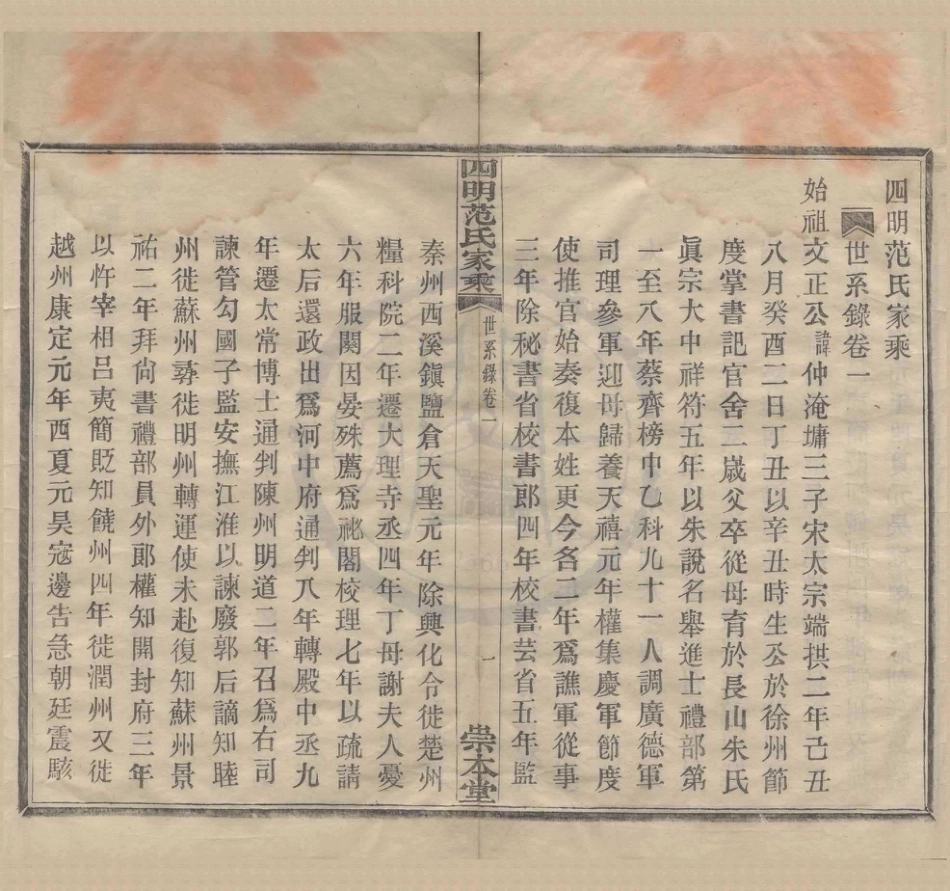 四明范氏家乘
世系錄卷一
始祖文正公諱仲淹墉三子宋太宗端拱二年己丑
八月癸酉二日丁丑以辛丑時生公於徐州節
度掌書記官舍二歲父卒從母育於長山朱氏
眞宗大中祥符五年以朱說名舉進士禮部第
一至八年蔡齊榜中乙科九十一人調廣德軍
司理參軍迎母歸養天禧元年權集慶軍節度
使推官始奏復本姓更今名二年爲譙軍從事
三年除秘書省校書郎四年校書芸省五年監
四明范氏家乘
世系錄卷一
一
崇本堂
泰州西溪鎭鹽倉天聖元年除興化令徙楚州
糧科院二年遷大理寺丞四年丁母謝夫人憂
六年服闋因晏殊薦爲祕閣校理七年以疏請
太后還政出爲河中府通判八年轉殿中丞九
年遷太常博士通判陳州明道二年召爲右司
諫管勾國子監安撫江淮以諫廢郭后謫知睦
州徙蘇州尋徙明州轉運使未赴復知蘇州景
祐二年拜尙書禮部員外郎權知開封府三年
以忤宰相呂夷簡貶知饒州四年徙潤州又徙
越州康定元年西夏元昊寇邊告急朝廷震駭